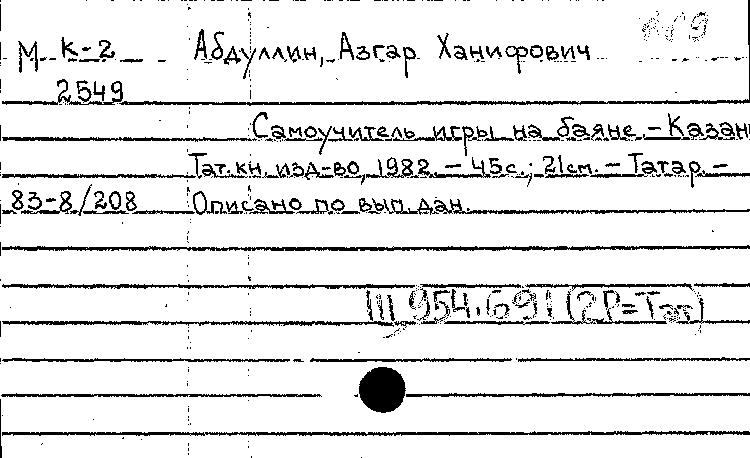 М К-2 Абдуллин, Азгар Ханифович
2549
Самоучитель игры на баяне. - Казань
Тат. кн. изд-во, 1982. - 45с.; 21см. - Татар. -
83-8/208 Описано по вып. дан.
III 954.691 (2Р=Тат)